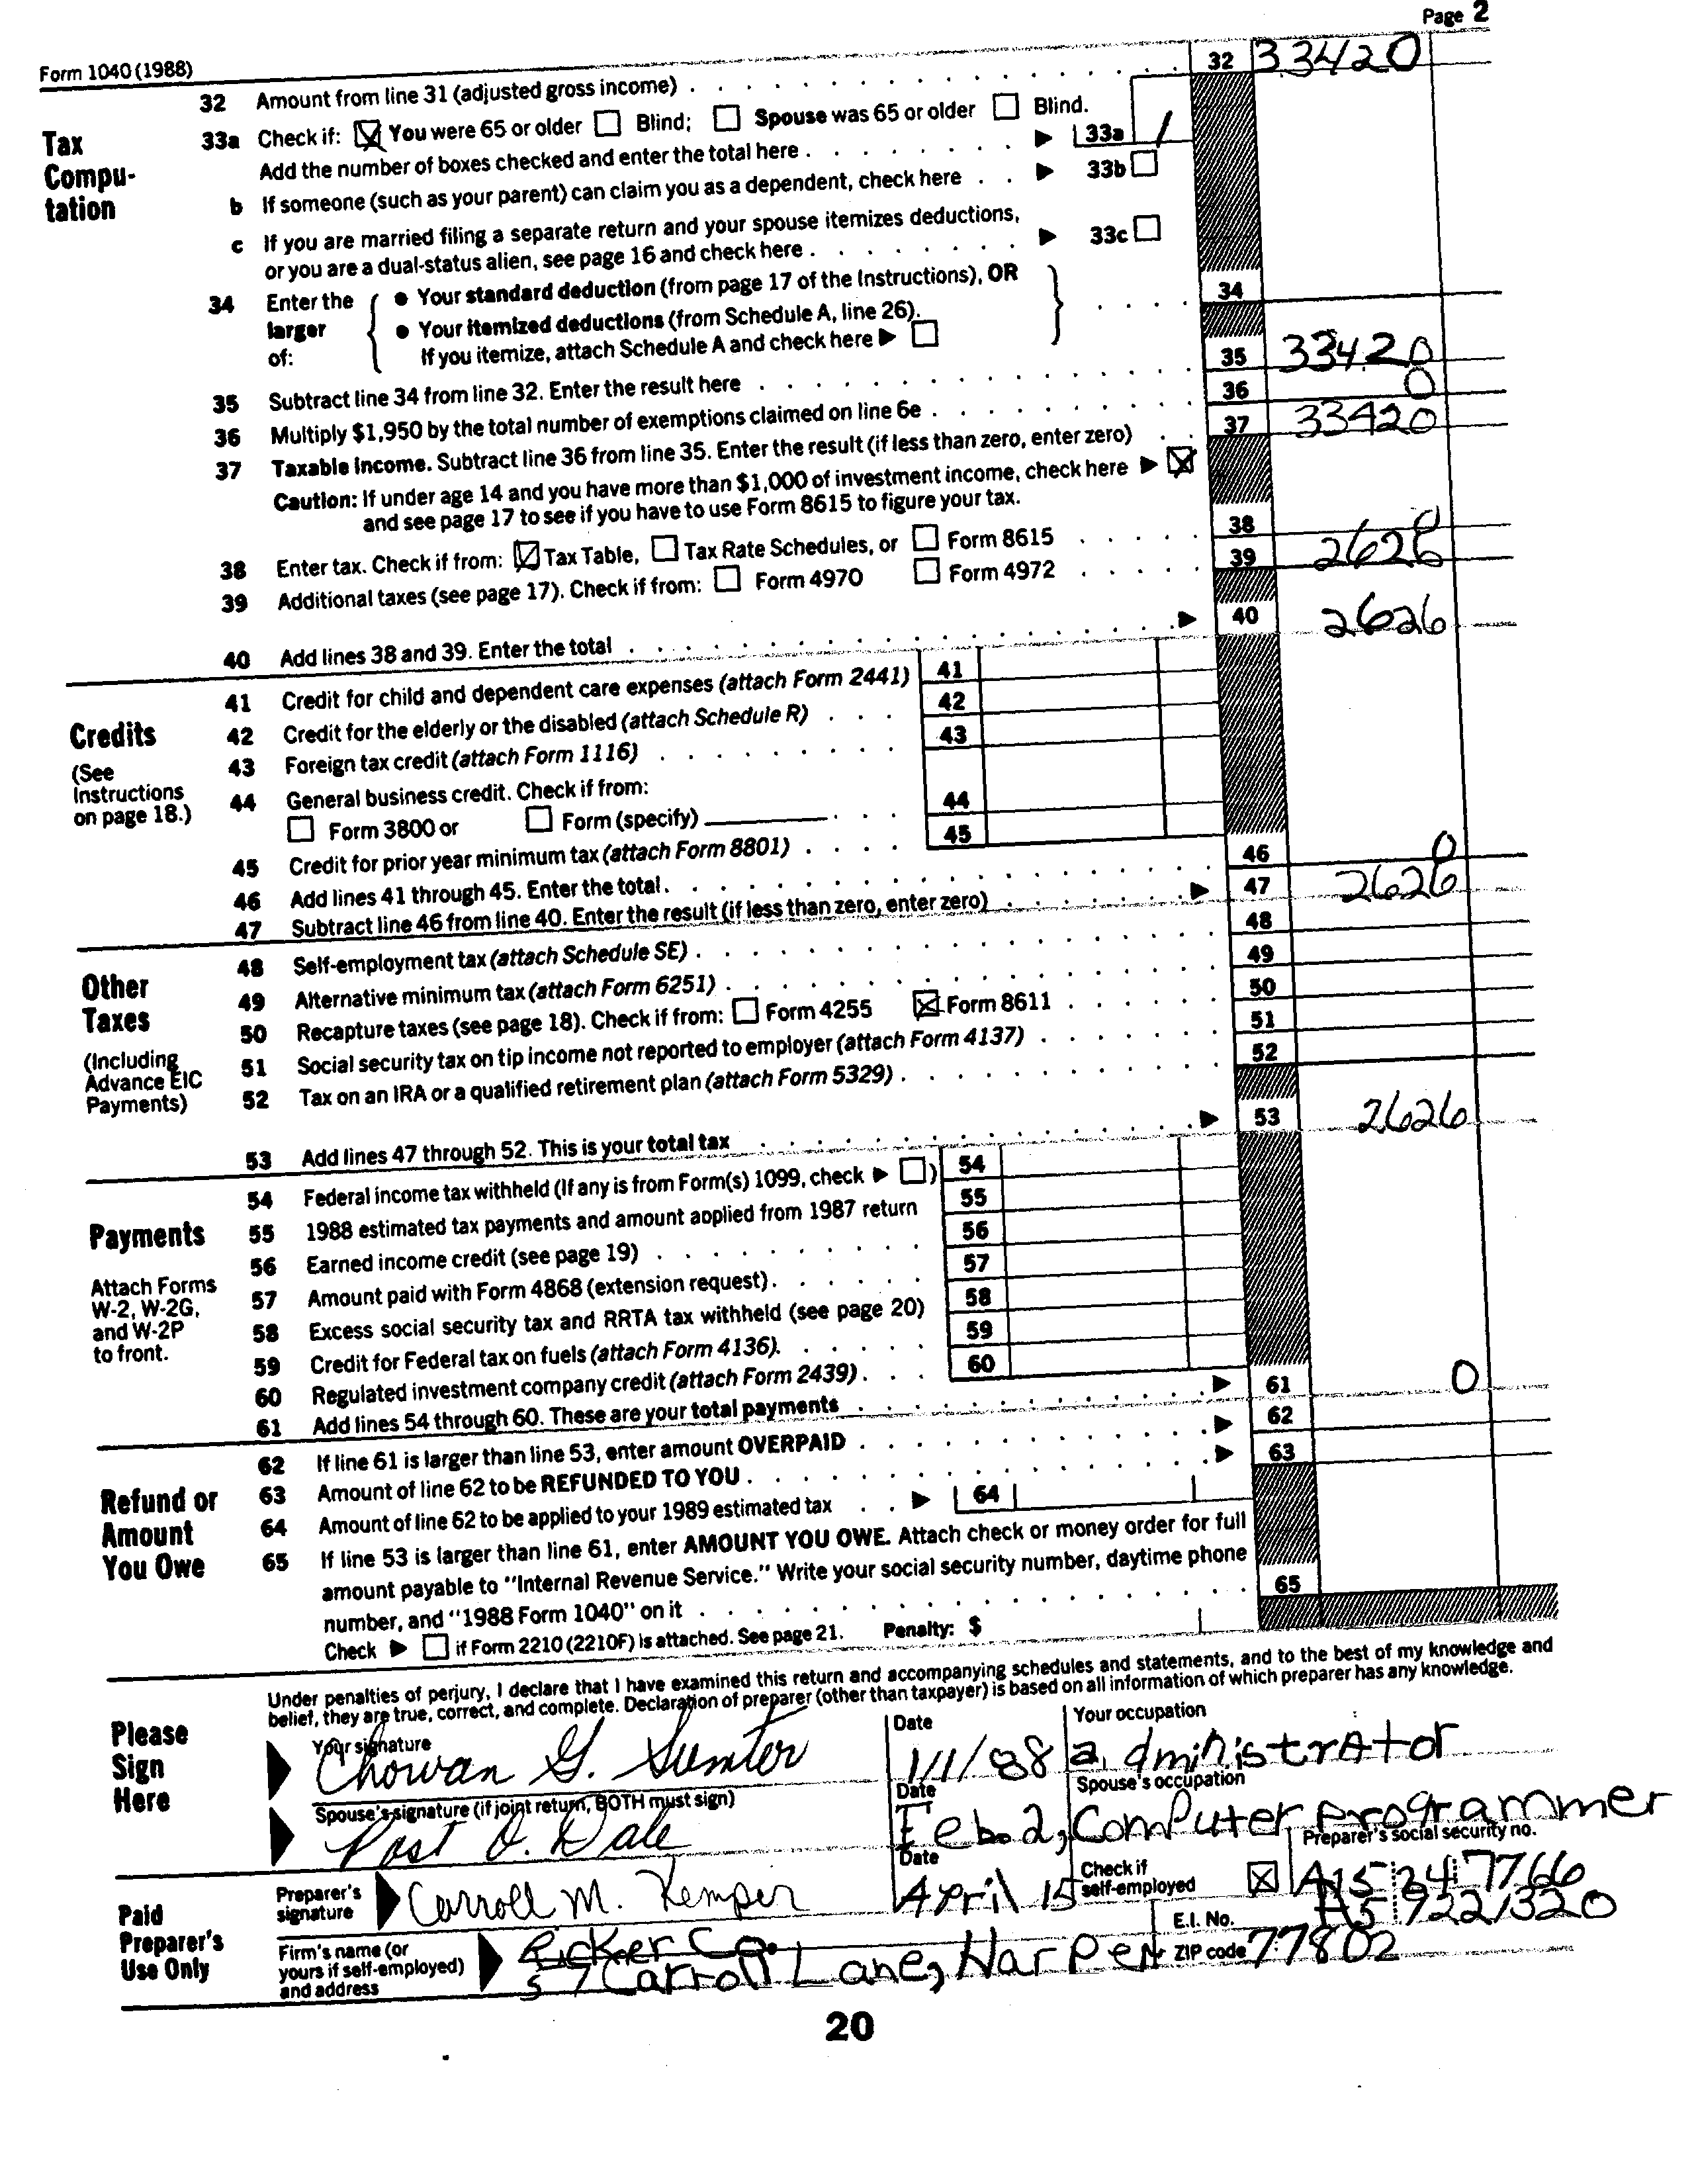 Page 2
Form 1040 (1988)
32 Amount from line 31 (adjusted gross income) 32 33420
Tax Computation
33a Check if: ☒ You were 65 or older ☐ Blind; ☐ Spouse was 65 or older ☐ Blind.
Add the number of boxes checked and enter the total here ▶ 33a 1
b If someone (such as your parent) can claim you as a dependent, check here ▶ 33b ☐
c If you are married filing a separate return and your spouse itemizes deductions,
or you are a dual-status alien, see page 16 and check here ▶ 33c ☐
34 Enter the larger of: { ● Your standard deduction (from page 17 of the Instructions), OR
● Your itemized deductions (from Schedule A, line 26).
If you itemize, attach Schedule A and check here ▶ ☐ } 34
35 Subtract line 34 from line 32. Enter the result here 35 33420
36 Multiply $1,950 by the total number of exemptions claimed on line 6e 36 0
37 Taxable income. Subtract line 36 from line 35. Enter the result (if less than zero, enter zero) 37 33420
Caution: If under age 14 and you have more than $1,000 of investment income, check here ▶ ☒
and see page 17 to see if you have to use Form 8615 to figure your tax.
38 Enter tax. Check if from: ☒ Tax Table, ☐ Tax Rate Schedules, or ☐ Form 8615 38 0
39 Additional taxes (see page 17). Check if from: ☐ Form 4970 ☐ Form 4972 39 2626
40 Add lines 38 and 39. Enter the total ▶ 40 2626
Credits
(See Instructions on page 18.)
41 Credit for child and dependent care expenses (attach Form 2441) 41
42 Credit for the elderly or the disabled (attach Schedule R) 42
43 Foreign tax credit (attach Form 1116) 43
44 General business credit. Check if from:
☐ Form 3800 or ☐ Form (specify) 44
45 Credit for prior year minimum tax (attach Form 8801) 45
46 Add lines 41 through 45. Enter the total 46 0
47 Subtract line 46 from line 40. Enter the result (if less than zero, enter zero) ▶ 47 2626
Other Taxes
(Including Advance EIC Payments)
48 Self-employment tax (attach Schedule SE) 48
49 Alternative minimum tax (attach Form 6251) 49
50 Recapture taxes (see page 18). Check if from: ☐ Form 4255 ☒ Form 8611 50
51 Social security tax on tip income not reported to employer (attach Form 4137) 51
52 Tax on an IRA or a qualified retirement plan (attach Form 5329) 52
53 Add lines 47 through 52. This is your total tax ▶ 53 2626
Payments
Attach Forms W-2, W-2G, and W-2P to front.
54 Federal income tax withheld (If any is from Form(s) 1099, check ▶ ☐) 54
55 1988 estimated tax payments and amount applied from 1987 return 55
56 Earned income credit (see page 19) 56
57 Amount paid with Form 4868 (extension request) 57
58 Excess social security tax and RRTA tax withheld (see page 20) 58
59 Credit for Federal tax on fuels (attach Form 4136) 59
60 Regulated investment company credit (attach Form 2439) 60
61 Add lines 54 through 60. These are your total payments ▶ 61 0
Refund or Amount You Owe
62 If line 61 is larger than line 53, enter amount OVERPAID ▶ 62
63 Amount of line 62 to be REFUNDED TO YOU ▶ 63
64 Amount of line 62 to be applied to your 1989 estimated tax ▶ 64
65 If line 53 is larger than line 61, enter AMOUNT YOU OWE. Attach check or money order for full
amount payable to "Internal Revenue Service." Write your social security number, daytime phone
number, and "1988 Form 1040" on it 65
Check ▶ ☐ if Form 2210 (2210F) is attached. See page 21. Penalty: $
Under penalties of perjury, I declare that I have examined this return and accompanying schedules and statements, and to the best of my knowledge and
belief, they are true, correct, and complete. Declaration of preparer (other than taxpayer) is based on all information of which preparer has any knowledge.
Please Sign Here
Your signature Date Your occupation
Chowan G. Sumter 1/1/88 administrator
Spouse's signature (if joint return, BOTH must sign) Date Spouse's occupation
Post O. Dale Feb. 2, Computer Programmer
Paid Preparer's Use Only
Preparer's signature Date Check if self-employed ☒ Preparer's social security no.
Carroll M. Kemper April 15 A15 34 7766
Firm's name (or yours if self-employed) and address E.I. No. A5 9221320
Ricker Co.
57 Carroll Lane, Harper ZIP code 77802
20